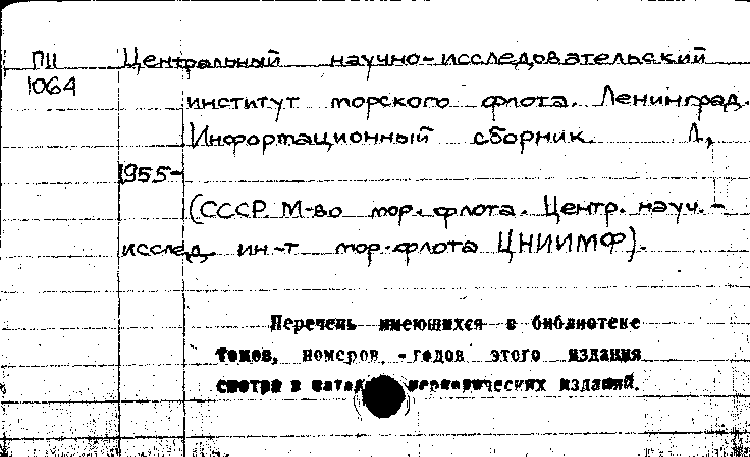 ПII Центральный научно-исследовательский
1064
институт морского флота. Ленинград.
Информационный сборник. Л.,
1955-
(СССР М-во мор. флота. Центр. науч.-
исслед. ин-т мор. флота ЦНИИМФ).
Перечень имеющихся в библиотеке
томов, номеров, -годов этого издания
смотри в периодических изданий.